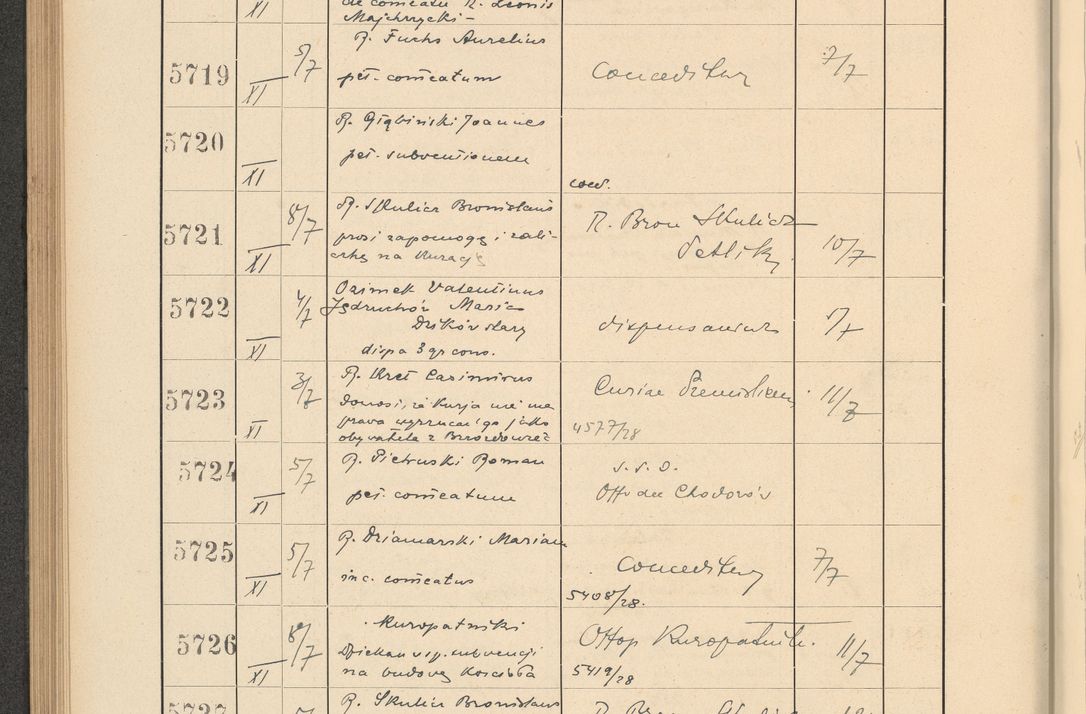 XI
de comeatu R. Leonis
Majchrzycki -
5719
XI
5/7
R. Fuchs Aurelius
pet. comeatum
Conceditur
7/7
5720
XI
R. Głąbiński Joannes
pet. subventionem
5721
XI
8/7
R. Skulicz Bronislaus
prosi zapomogę i zali-
czkę na Kurację
R. Bron Skulicz
10/7
5722
XI
4/7
Ozimek Valentinus
Jędruchów Maria
Dzików stary
dispa 3 gr cons.
5723
XI
3/7
R. Kret Casimirus
donosi, że Kurja nie ma
prawa wyrzucać go jako
obywatela z Brzozdowiec
4577/28
11/7
5724
XI
5/7
R. Pietruski Roman
pet. comeatum
Chodorów
5725
XI
5/7
R. Dziamarski Marian
inc. comeatus
Conceditur
5408/28.
7/7
5726
XI
8/7
Kuropatnicki
na budowę Kościoła
5419/28
11/7
5727
R. Skulicz Bronislaus